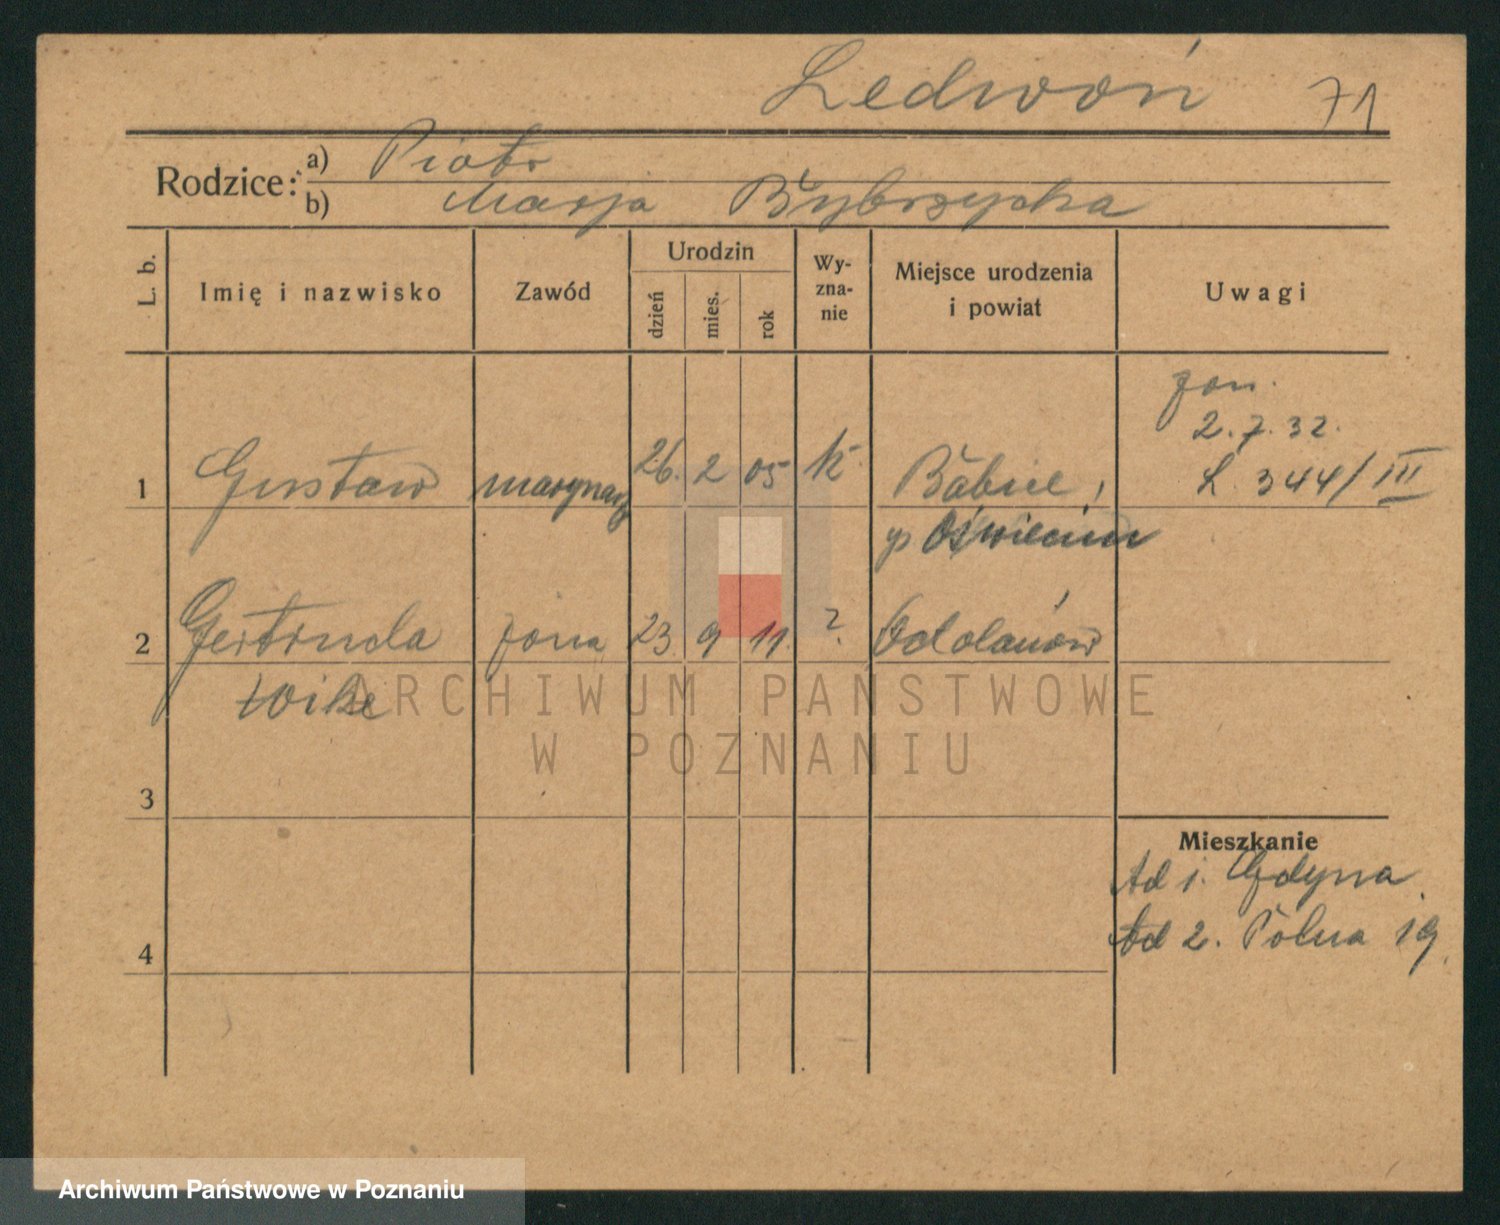 Ledwoń 71
Rodzice: a) Piotr
b) Marja
L. b. Imię i nazwisko Zawód Urodzin dzień mies. rok Wy-zna-nie Miejsce urodzenia i powiat Uwagi
żon.
2.7.32.
L. 344/III
1 Gustaw marynarz 26. 2 05 k. Babice,
p Oświęcim
2 Gertruda żona 23 9 11. ? Odolanów
3
Mieszkanie
Ad 1. Gdynia
4 Ad 2. Polna 19.
ARCHIWUM PAŃSTWOWE
W POZNANIU
Archiwum Państwowe w Poznaniu